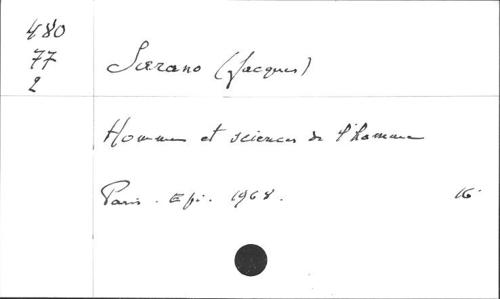 480
77
2
Sarano (Jacques)
Hommes et sciences de l'homme
Paris. Epi. 1968. 16°